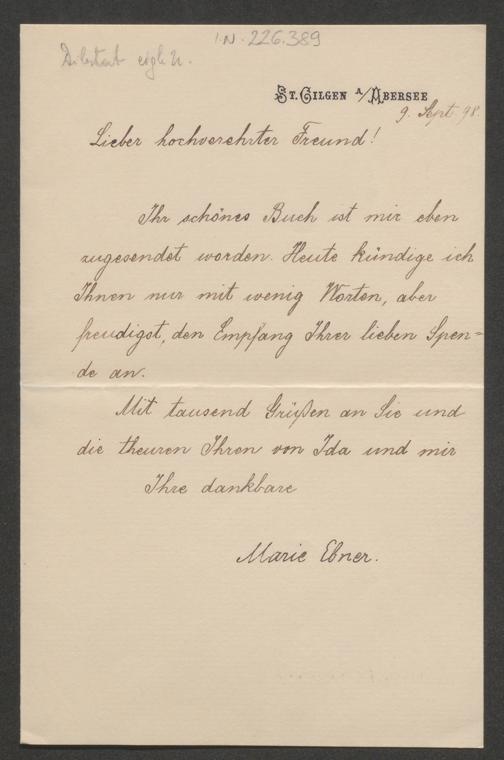 I.N. 226.389
ST. GILGEN A/ABERSEE
9. Sept 98.
Lieber hochverehrter Freund!
Ihr schönes Buch ist mir eben
zugesendet worden. Heute kündige ich
Ihnen nur mit wenig Worten, aber
freudigst, den Empfang Ihrer lieben Spen=
de an.
Mit tausend Grüßen an Sie und
die theuren Ihren von Ida und mir
Ihre dankbare
Marie Ebner.